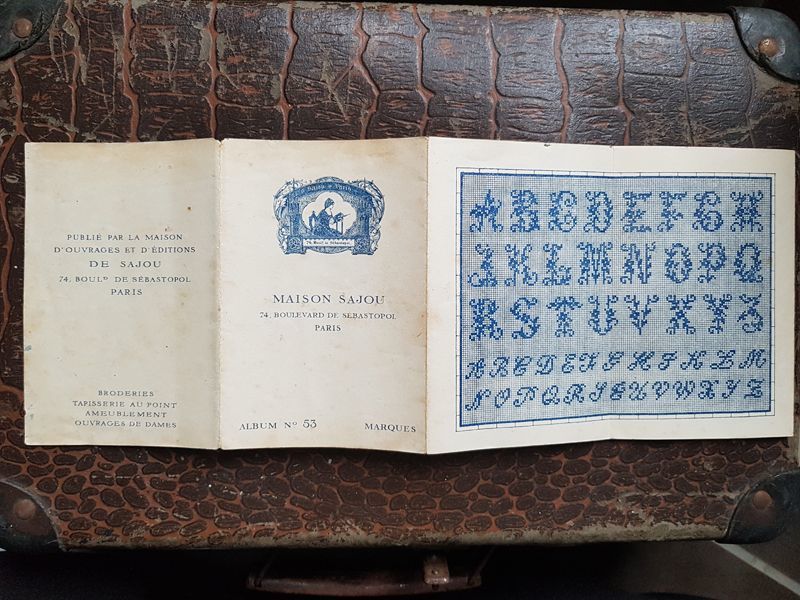 PUBLIÉ PAR LA MAISON
D'OUVRAGES ET D'ÉDITIONS
DE SAJOU
74, BOULD DE SÉBASTOPOL
PARIS
BRODERIES
TAPISSERIE AU POINT
AMEUBLEMENT
OUVRAGES DE DAMES
Sajou Paris
74, Boulᵈ de Sébastopol
MAISON SAJOU
74, BOULEVARD DE SÉBASTOPOL
PARIS
ALBUM Nº 53 MARQUES
A B C D E F G H
J K L M N O P Q
R S T U V X Y Z
A B C D E F G H I K L M
N O P Q R S T U V W X Y Z